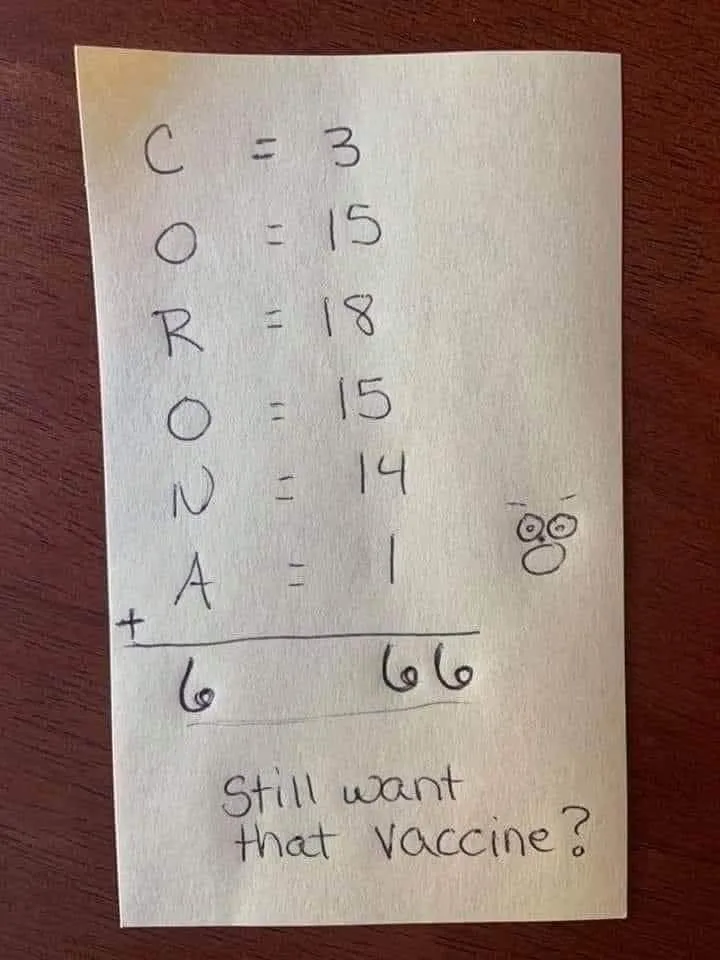 C = 3
O = 15
R = 18
O = 15
N = 14
A = 1
+
6 66
Still want
that vaccine?